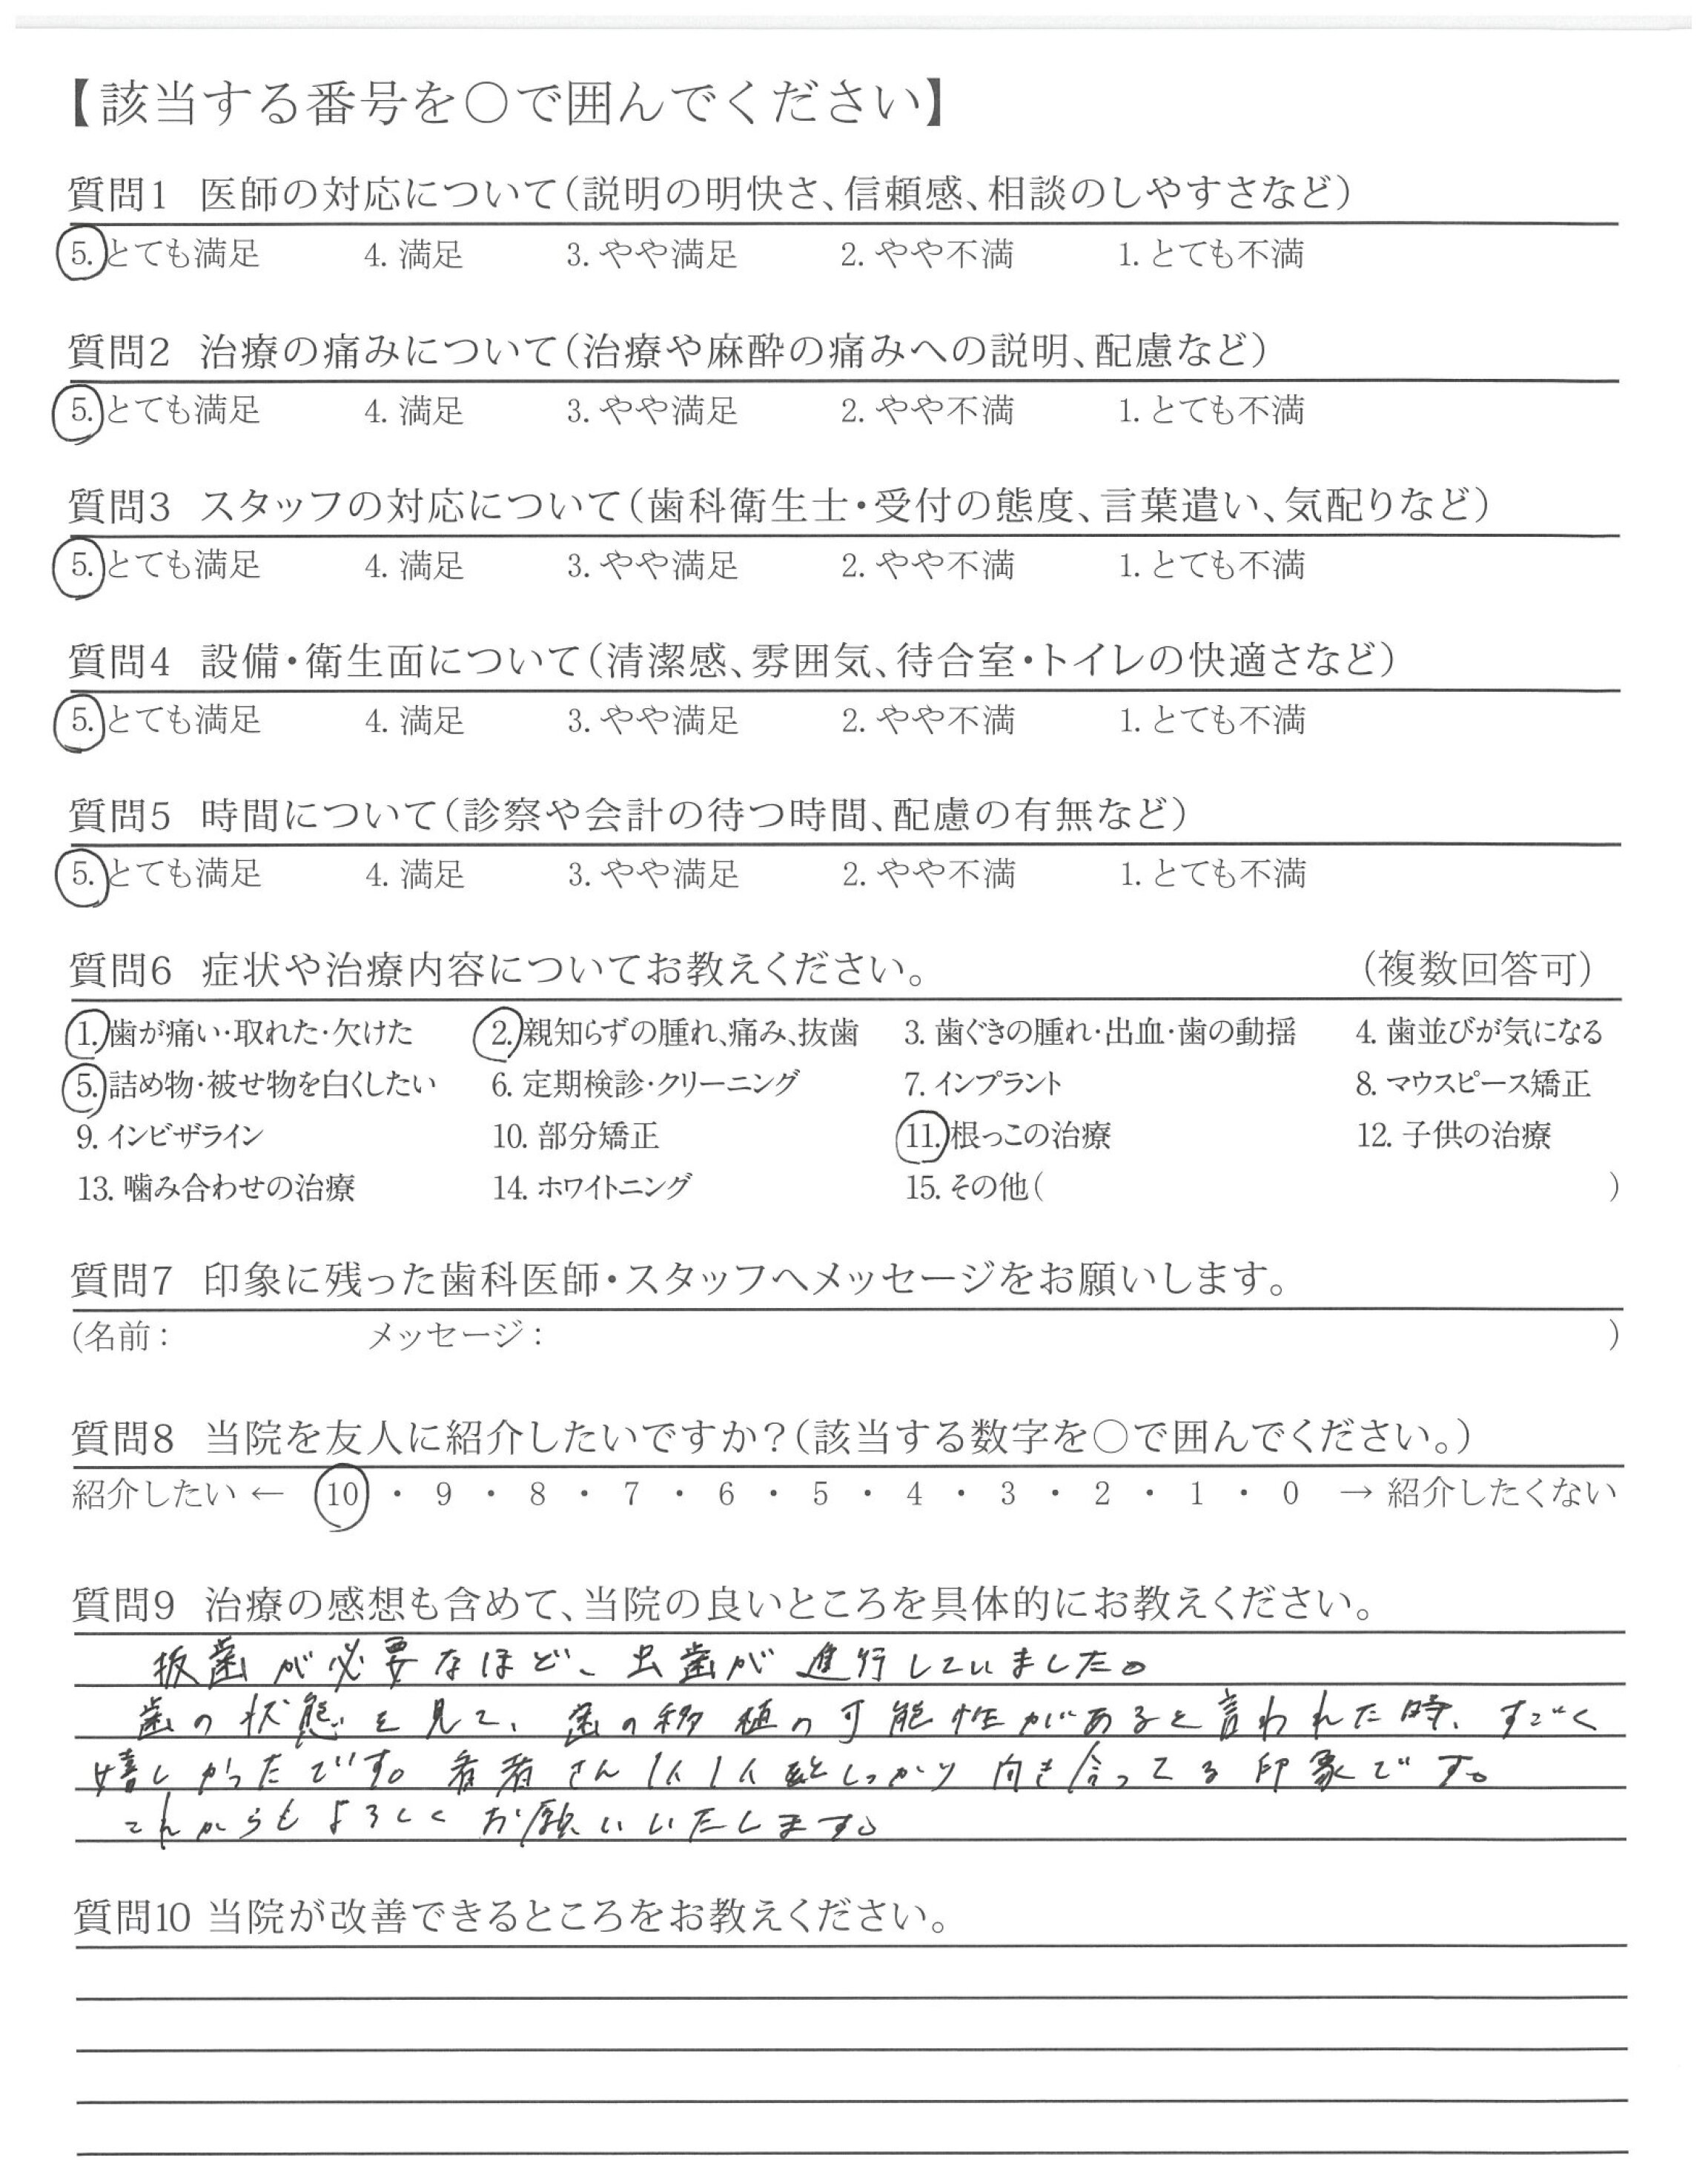 【該当する番号を〇で囲んでください】
質問1 医師の対応について（説明の明快さ、信頼感、相談のしやすさなど）
5. とても満足 4. 満足 3. やや満足 2. やや不満 1. とても不満
質問2 治療の痛みについて（治療や麻酔の痛みへの説明、配慮など）
5. とても満足 4. 満足 3. やや満足 2. やや不満 1. とても不満
質問3 スタッフの対応について（歯科衛生士・受付の態度、言葉遣い、気配りなど）
5. とても満足 4. 満足 3. やや満足 2. やや不満 1. とても不満
質問4 設備・衛生面について（清潔感、雰囲気、待合室・トイレの快適さなど）
5. とても満足 4. 満足 3. やや満足 2. やや不満 1. とても不満
質問5 時間について（診察や会計の待つ時間、配慮の有無など）
5. とても満足 4. 満足 3. やや満足 2. やや不満 1. とても不満
質問6 症状や治療内容についてお教えください。 （複数回答可）
1. 歯が痛い・取れた・欠けた 2. 親知らずの腫れ、痛み、抜歯 3. 歯ぐきの腫れ・出血・歯の動揺 4. 歯並びが気になる
5. 詰め物・被せ物を白くしたい 6. 定期検診・クリーニング 7. インプラント 8. マウスピース矯正
9. インビザライン 10. 部分矯正 11. 根っこの治療 12. 子供の治療
13. 噛み合わせの治療 14. ホワイトニング 15. その他（ ）
質問7 印象に残った歯科医師・スタッフへメッセージをお願いします。
（名前： メッセージ： ）
質問8 当院を友人に紹介したいですか？（該当する数字を〇で囲んでください。）
紹介したい ← 10 ・ 9 ・ 8 ・ 7 ・ 6 ・ 5 ・ 4 ・ 3 ・ 2 ・ 1 ・ 0 → 紹介したくない
質問9 治療の感想も含めて、当院の良いところを具体的にお教えください。
抜歯が必要なほど、虫歯が進行していました。
歯の状態を見て、歯の移植の可能性があると言われた時、すごく
嬉しかったです。患者さん1人1人としっかり向き合ってる印象です。
これからもよろしくお願いいたします。
質問10 当院が改善できるところをお教えください。